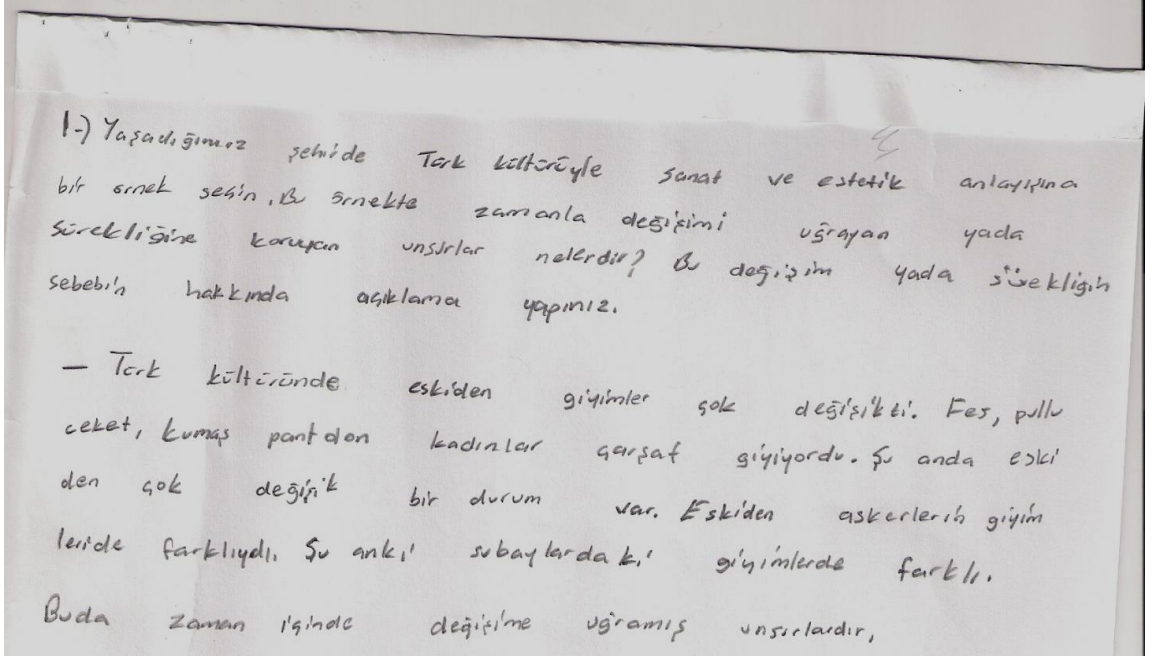 1-) Yaşadığımız şehirde Türk kültürüyle sanat ve estetik anlayışına
bir örnek seçin. Bu örnekte zamanla değişimi uğrayan yada
Sürekliğine koruyan unsurlar nelerdir? Bu değişim yada sürekligin
sebebin hakkında açıklama yapınız.
— Türk kültüründe eskiden giyimler çok değişikti. Fes, pullu
ceket, kumaş pantolon kadınlar çarşaf giyiyordu. Şu anda eski
den çok değişik bir durum var. Eskiden askerlerin giyim
leride farklıydı. Şu anki subaylardaki giyimlerde farklı.
Buda zaman içinde değişime uğramış unsurlardır,